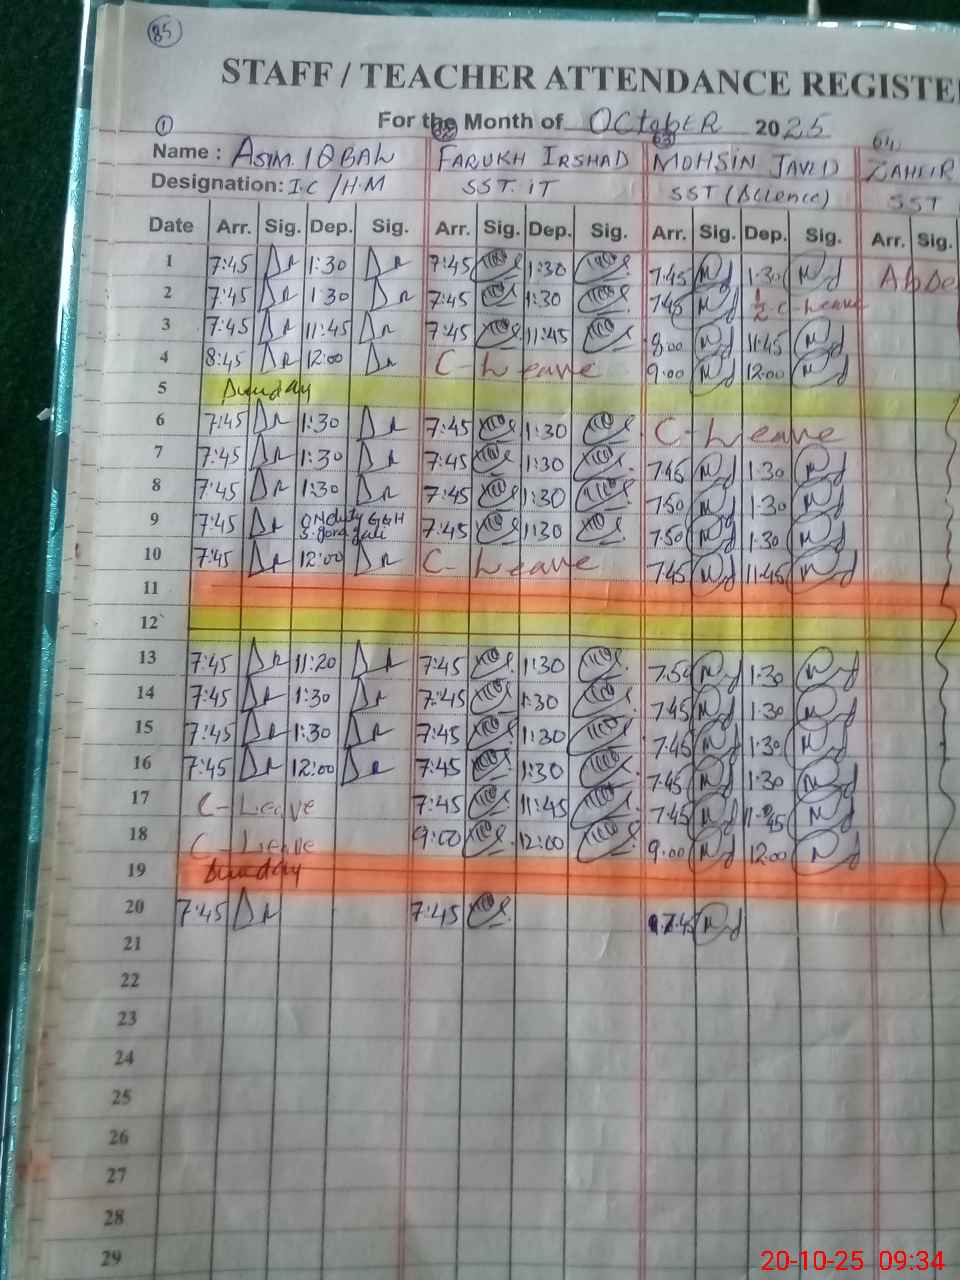 85
STAFF / TEACHER ATTENDANCE REGISTE
For the Month of OCtobER 2025
Name : ASIM IQBAL FARUKH IRSHAD MOHSIN JAVED ZAHEER
Designation: I.C / H.M SST. IT SST (Science) SST
Date Arr. Sig. Dep. Sig. Arr. Sig. Dep. Sig. Arr. Sig. Dep. Sig. Arr. Sig.
1 7:45 1:30 7:45 1:30 7:45 1:30
2 7:45 1:30 7:45 1:30 7:45 1/2 C-Leave
3 7:45 11:45 7:45 11:45 8:00 11:45
4 8:45 12:00 C-Leave 9:00 12:00
5 Sunday
6 7:45 1:30 7:45 1:30 C-Leave
7 7:45 1:30 7:45 1:30 7:45 1:30
8 7:45 1:30 7:45 1:30 7:50 1:30
9 7:45 ON duty 7:45 1:30 7:50 1:30
10 7:45 12:00 C-Leave 7:45 11:45
11
12
13 7:45 11:20 7:45 1:30 7:50 1:30
14 7:45 1:30 7:45 1:30 7:45 1:30
15 7:45 1:30 7:45 1:30 7:45 1:30
16 7:45 12:00 7:45 1:30 7:45 1:30
17 C-Leave 7:45 11:45 7:45 11:45
18 C-Leave 9:00 12:00 9:00 12:00
19 Sunday
20 7:45 7:45 7:45
21
22
23
24
25
26
27
28
29
20-10-25 09:34